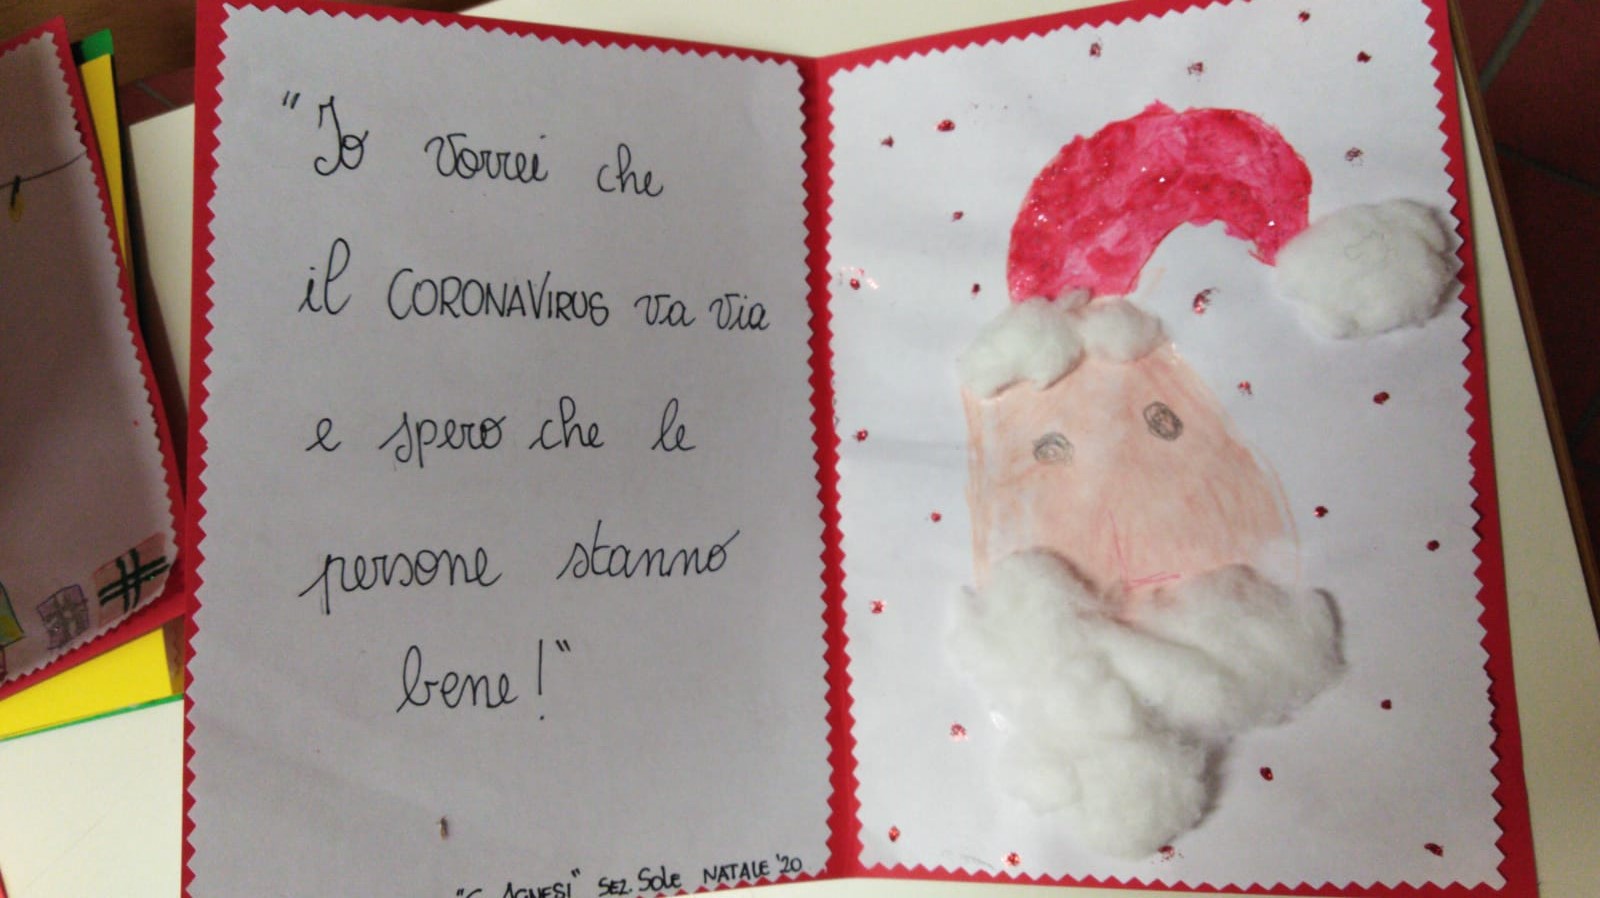 "Io vorrei che
il CORONAVIRUS va via
e spero che le
persone stanno
bene!"
AGNESI" SEZ. SOLE NATALE '20